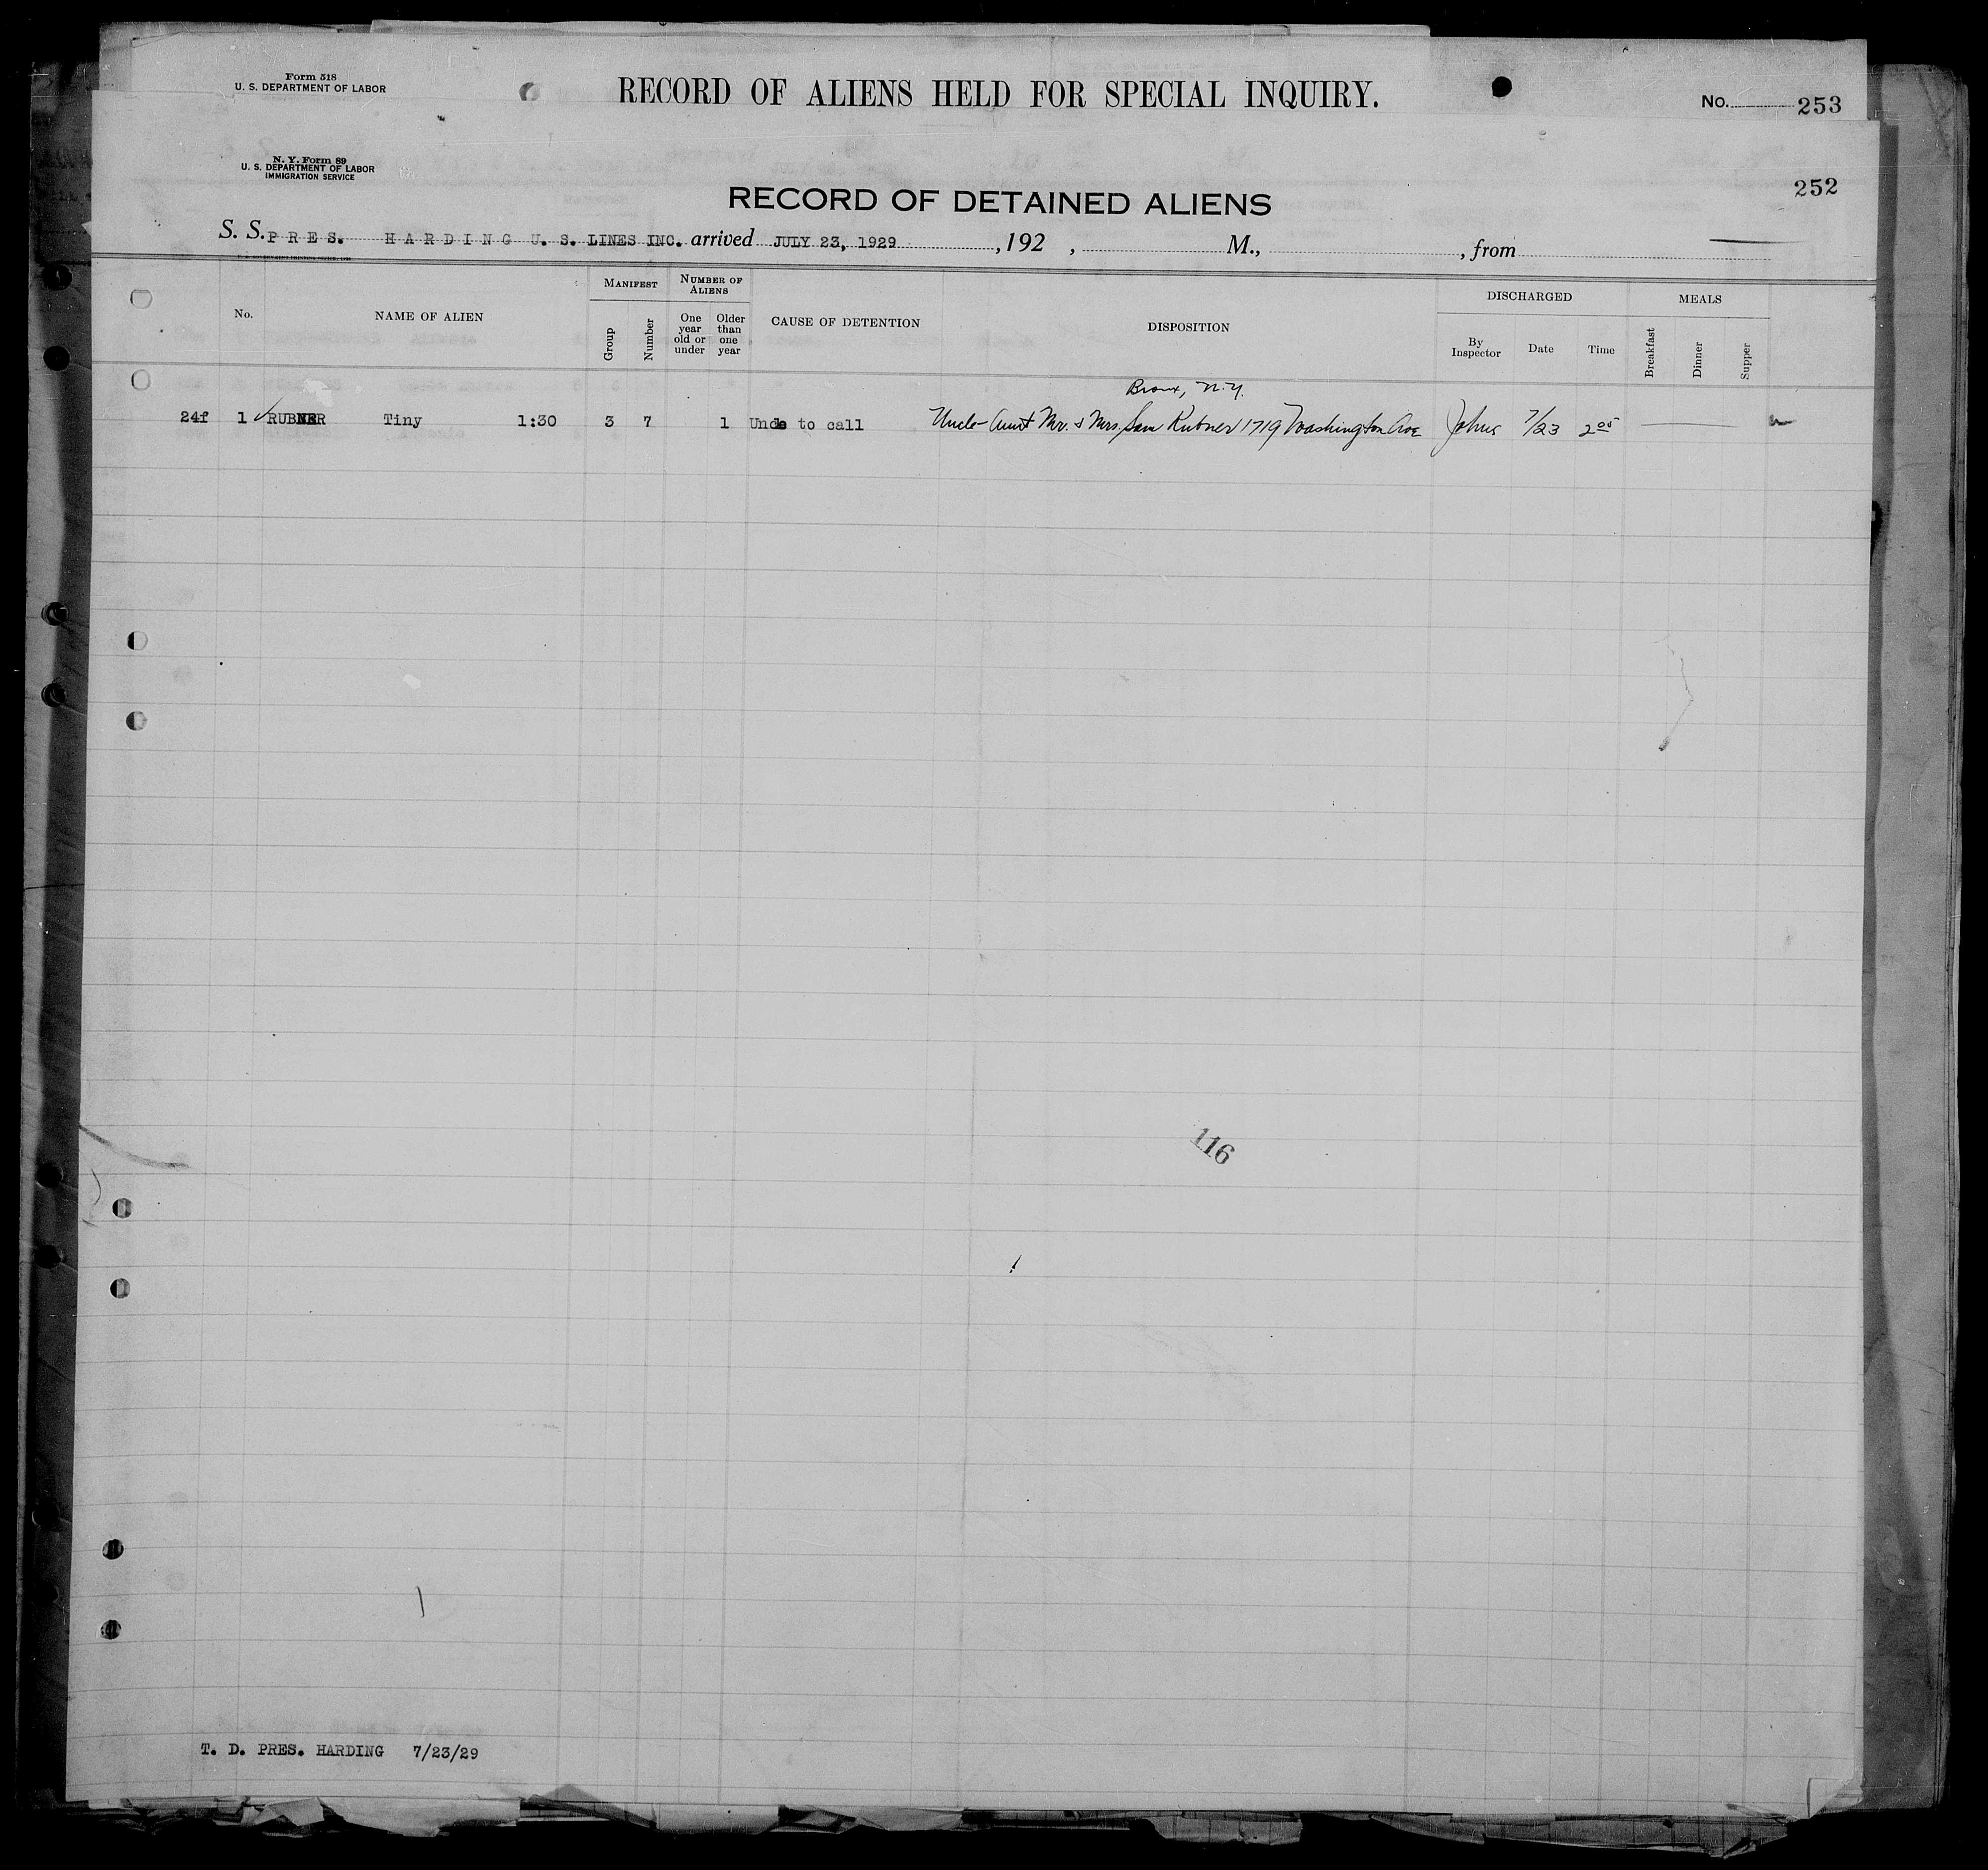 Form 518
U. S. DEPARTMENT OF LABOR
RECORD OF ALIENS HELD FOR SPECIAL INQUIRY.
No. 253
N. Y. Form 89
U. S. DEPARTMENT OF LABOR
IMMIGRATION SERVICE
252
RECORD OF DETAINED ALIENS
S. S. PRES. HARDING U. S. LINES INC. arrived JULY 23, 1929 , 192 , M., , from
No.
NAME OF ALIEN
MANIFEST
Group
Number
NUMBER OF ALIENS
One year old or under
Older than one year
CAUSE OF DETENTION
DISPOSITION
DISCHARGED
By Inspector
Date
Time
MEALS
Breakfast
Dinner
Supper
Bronx, N.Y.
24f 1 RUBNER Tiny 1:30 3 7 1 Uncle to call Uncle-Aunt Mr. & Mrs. Sam Rubner 1719 Washington Ave Johns 7/23 2 05
116
T. D. PRES. HARDING 7/23/29